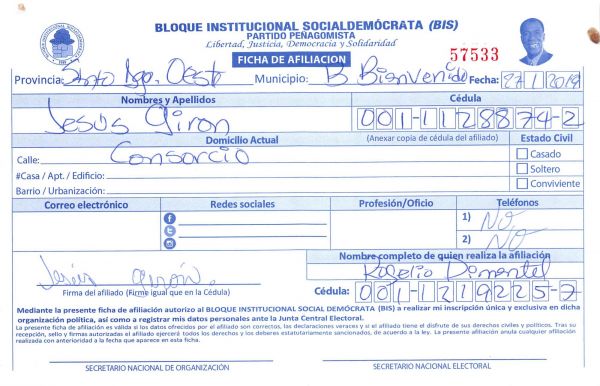 BLOQUE INSTITUCIONAL SOCIALDEMÓCRATA (BIS)
PARTIDO PEÑAGOMISTA
Libertad, Justicia, Democracia y Solidaridad
FICHA DE AFILIACION
57533
Provincia: Snto Dgo. Oeste Municipio: B Bienvenido Fecha: 27/1/2019
Nombres y Apellidos Cédula
Jesús Giron 001-1128874-2
Domicilio Actual (Anexar copia de cédula del afiliado) Estado Civil
Calle: Consorcio Casado
#Casa / Apt. / Edificio: Soltero
Barrio / Urbanización: Conviviente
Correo electrónico Redes sociales Profesión/Oficio Teléfonos
1) No
2) No
Nombre completo de quien realiza la afiliación
Jesús Girón. Rogelio Pimentel
Firma del afiliado (Firme igual que en la Cédula) Cédula: 001-1219225-7
Mediante la presente ficha de afiliación autorizo al BLOQUE INSTITUCIONAL SOCIAL DEMÓCRATA (BIS) a realizar mi inscripción única y exclusiva en dicha
organización política, así como a registrar mis datos personales ante la Junta Central Electoral.
La presente ficha de afiliación es válida si los datos ofrecidos por el afiliado son correctos, las declaraciones veraces y si el afiliado tiene el disfrute de sus derechos civiles y políticos. Tras su
recepción, sello y firmas autorizadas el afiliado ejercerá todos los derechos y los deberes estatutariamente sancionados, de acuerdo a la ley. La presente afiliación anula cualquier afiliación
realizada con anterioridad a la fecha que aparece en esta ficha.
SECRETARIO NACIONAL DE ORGANIZACIÓN SECRETARIO NACIONAL ELECTORAL